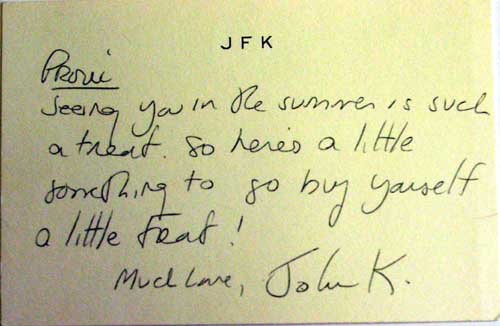 JFK
Provi
Seeing you in the summer is such
a treat. So here's a little
something to go buy yourself
a little treat!
Much Love, John K.